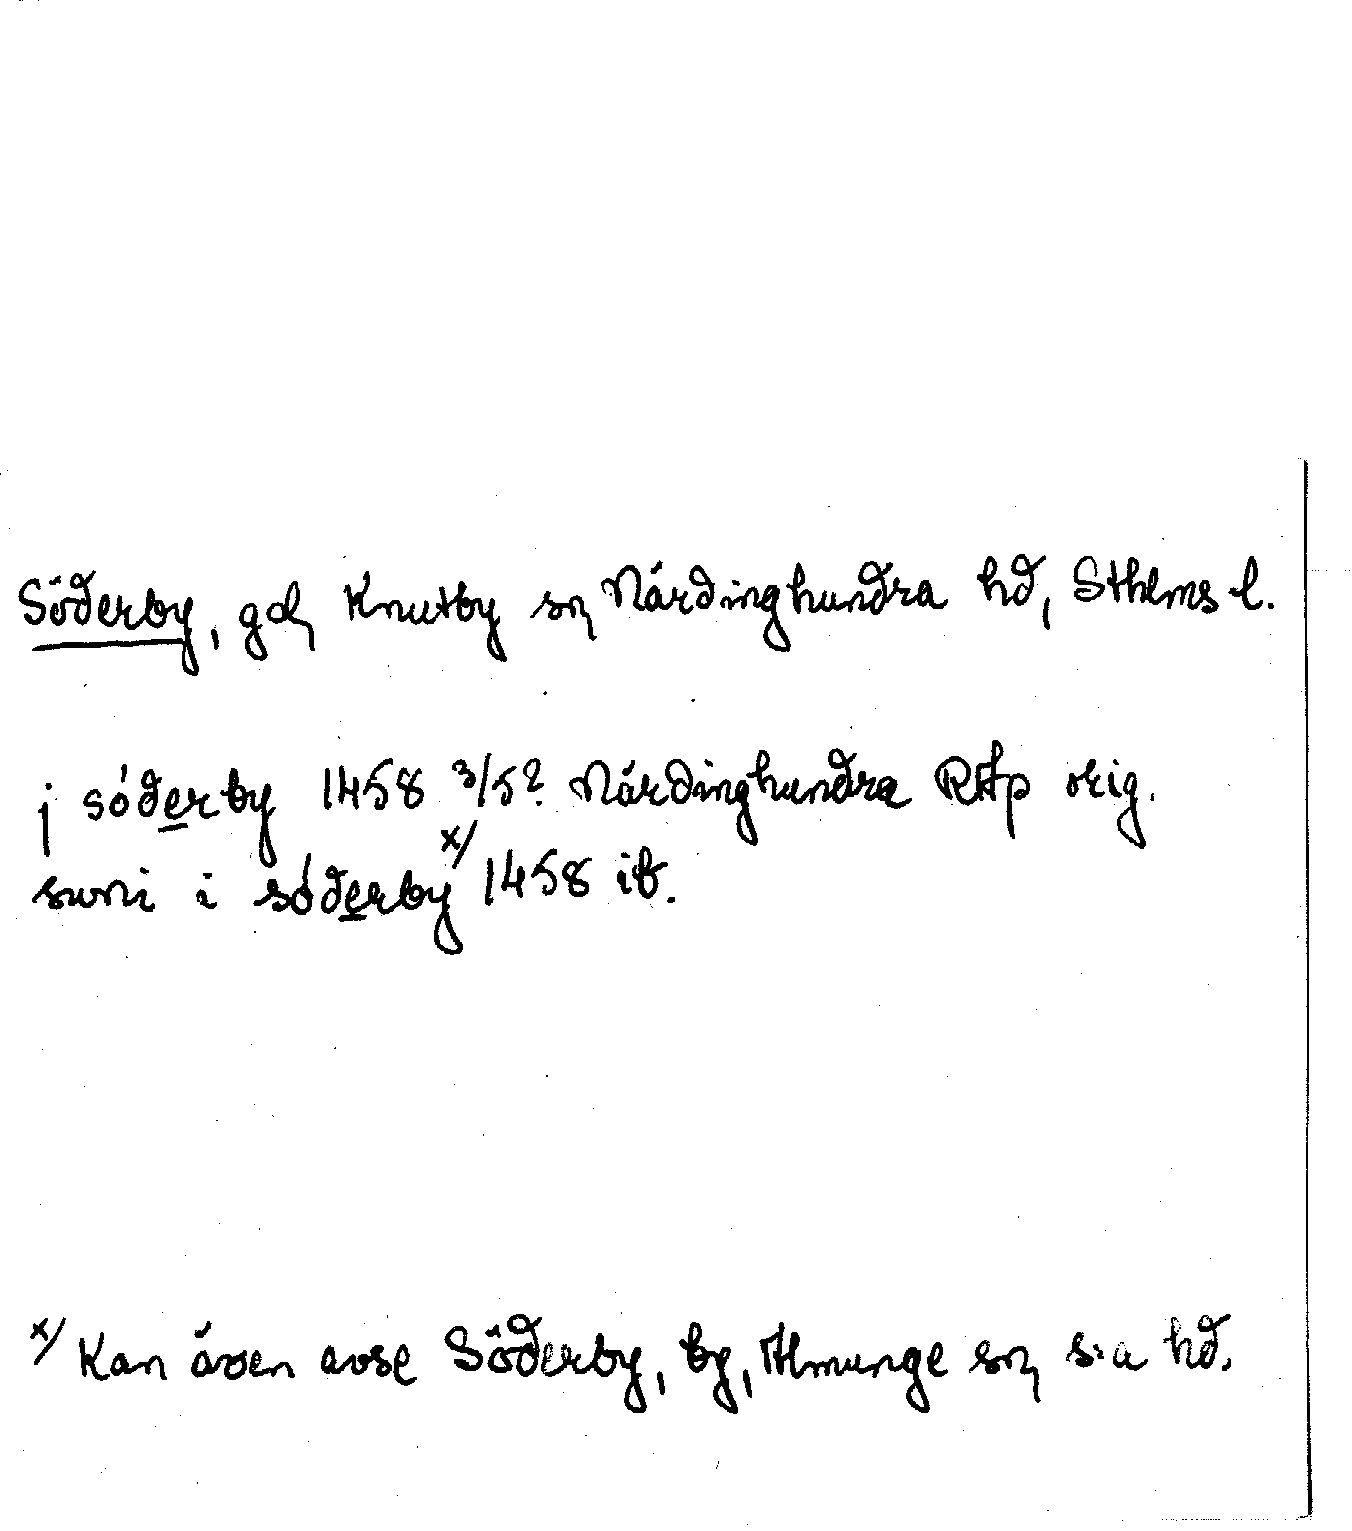 Söderby, gd, Knutby sn, Närdinghundra hd, Sthlms l.
j söderby 1458 3/5? Närdinghundra RAp orig.
swni i söderby x/ 1458 ib.
x/ Kan även avse Söderby, by, Almunge sn, s:a hd.